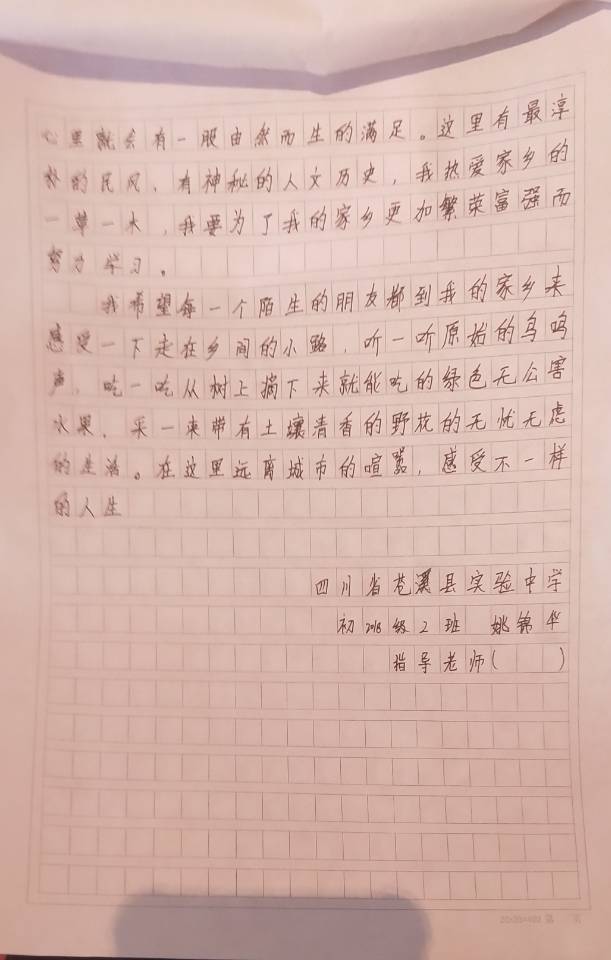 心里就会有一股由然而生的满足。这里有最淳
朴的民风，有神秘的人文历史，我热爱家乡的
一草一木，我要为了我的家乡更加繁荣富强而
努力学习。
我希望每一个陌生的朋友都到我的家乡来
感受一下走在乡间的小路，听一听原始的鸟鸣
声，吃一吃从树上摘下来就能吃的绿色无公害
水果，采一束带有土壤清香的野花的无忧无虑
的生活。在这里远离城市的喧嚣，感受不一样
的人生
四川省苍溪县实验中学
初2018级2班 姚锦华
指导老师( )
20×20=400 第 页